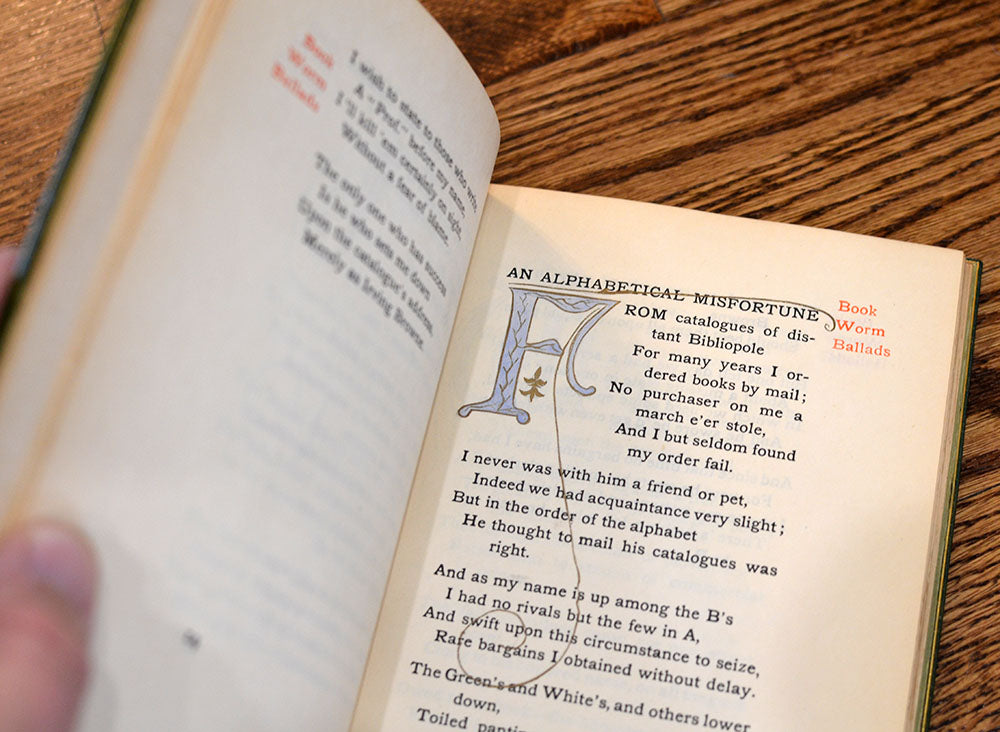 Book
Worm
Ballads
I wish to state to those who write
A "Prof." before my name,
I 'll kill 'em certainly on sight,
Without a fear of blame.
The only one who has success
Is he who sets me down
Upon the catalogue's address,
Merely as Irving Browne.
AN ALPHABETICAL MISFORTUNE
Book
Worm
Ballads
FROM catalogues of dis-
tant Bibliopole
For many years I or-
dered books by mail;
No purchaser on me a
march e'er stole,
And I but seldom found
my order fail.
I never was with him a friend or pet,
Indeed we had acquaintance very slight;
But in the order of the alphabet
He thought to mail his catalogues was
right.
And as my name is up among the B's
I had no rivals but the few in A,
And swift upon this circumstance to seize,
Rare bargains I obtained without delay.
The Green's and White's, and others lower
down,
Toiled